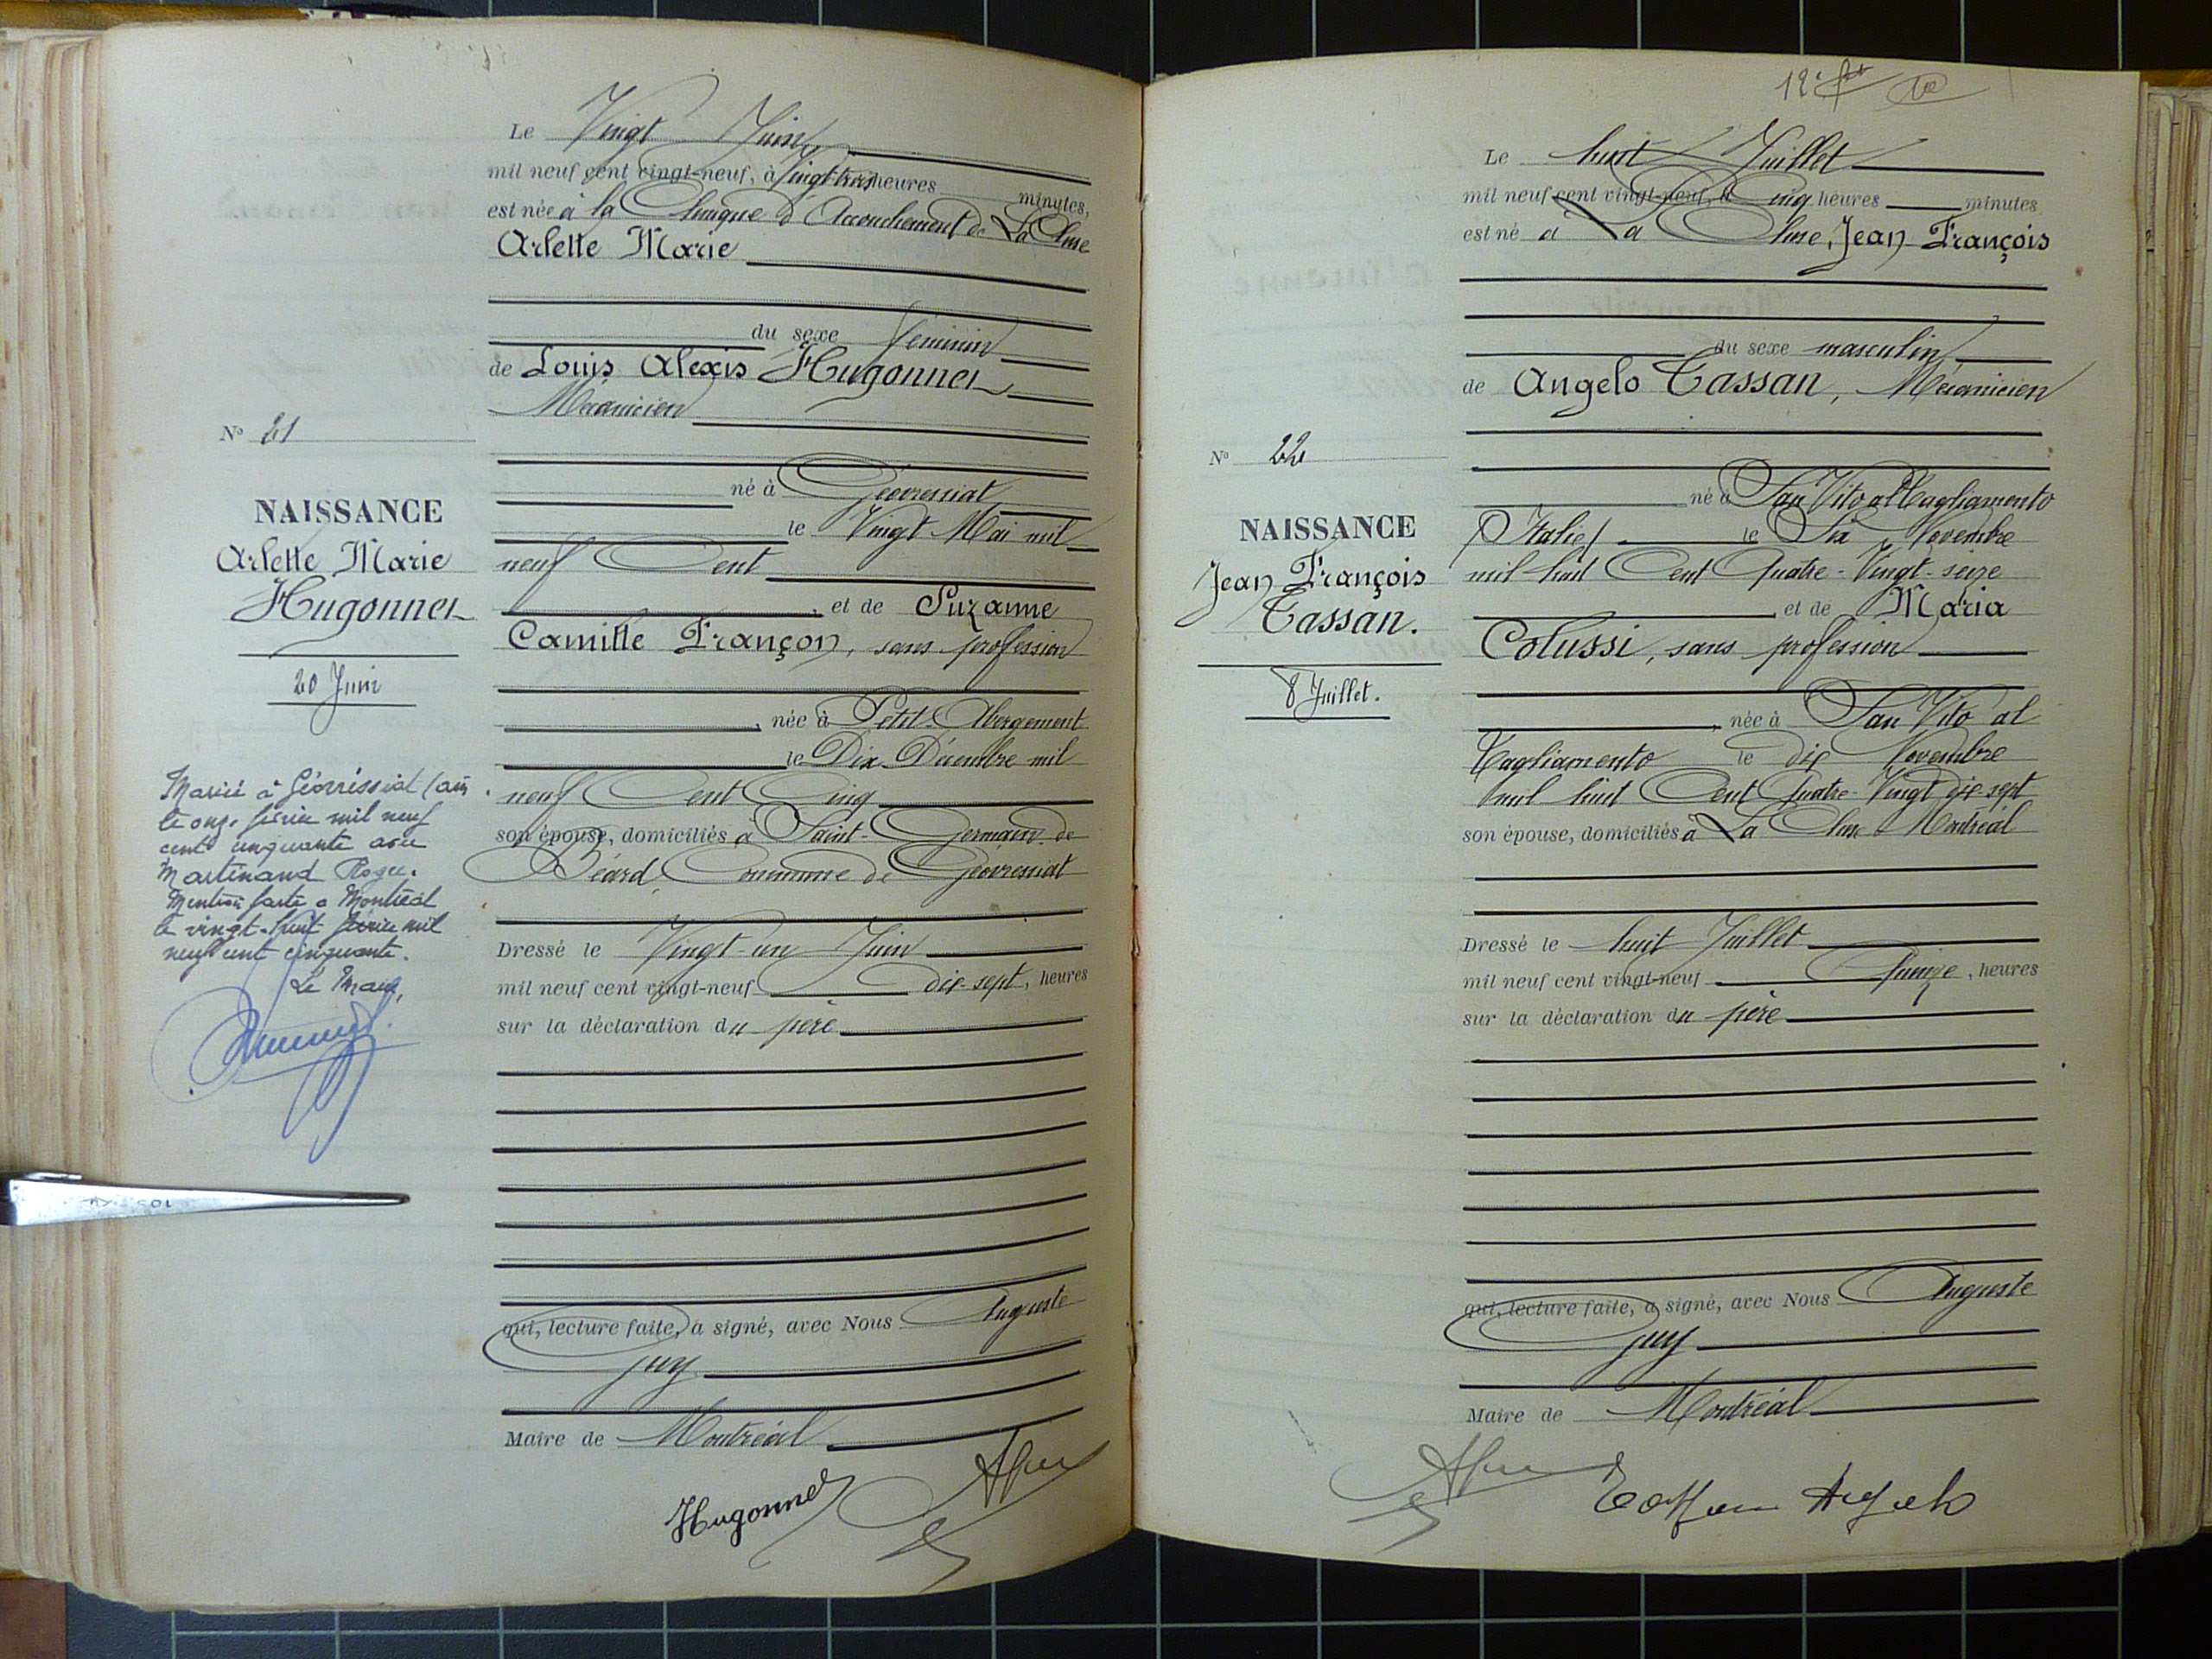 Le Vingt Juin
mil neuf cent vingt-neuf, à Vingt trois heures minutes,
est née à la Clinique d'Accouchement de La Cluse
Arlette Marie
du sexe féminin
de Louis Alexis Hugonnet
Mécanicien
né à Géovressiat
le Vingt Mai mil
neuf Cent
, et de Suzanne
Camille Françon, sans profession
, née à Petit-Abergement
le Dix Décembre mil
neuf Cent Cinq
son épouse, domiciliés à Saint-Germain de
Béard, Commune de Géovressiat
Dressé le Vingt-un Juin
mil neuf cent vingt-neuf dix-sept, heures
sur la déclaration du père
qui, lecture faite, a signé, avec Nous Auguste
Juy
Maire de Montréal
Hugonnet
N° 21
NAISSANCE
Arlette Marie
Hugonnet
20 Juin
Mariée à Géovressiat (Ain
le onze février mil neuf
cent cinquante avec
Martinand Roger.
Mention faite à Montréal
le vingt-huit février mil
neuf cent cinquante.
Le Maire,
Le huit Juillet
mil neuf cent vingt-neuf, à Cinq heures minutes
est né à La Cluse, Jean François
du sexe masculin
de Angelo Tassan, Mécanicien
né à San Vito al Tagliamento
(Italie) le Six Novembre
mil huit Cent Quatre-Vingt-seize
et de Maria
Colussi, sans profession
, née à San Vito al
Tagliamento le dix Novembre
mil huit Cent Quatre-Vingt dix sept
son épouse, domiciliés à La Cluse Montréal
Dressé le huit Juillet
mil neuf cent vingt-neuf Quinze, heures
sur la déclaration du père
qui, lecture faite, a signé, avec Nous Auguste
Juy
Maire de Montréal
Tassan Angelo
N° 22
NAISSANCE
Jean François
Tassan.
8 Juillet.